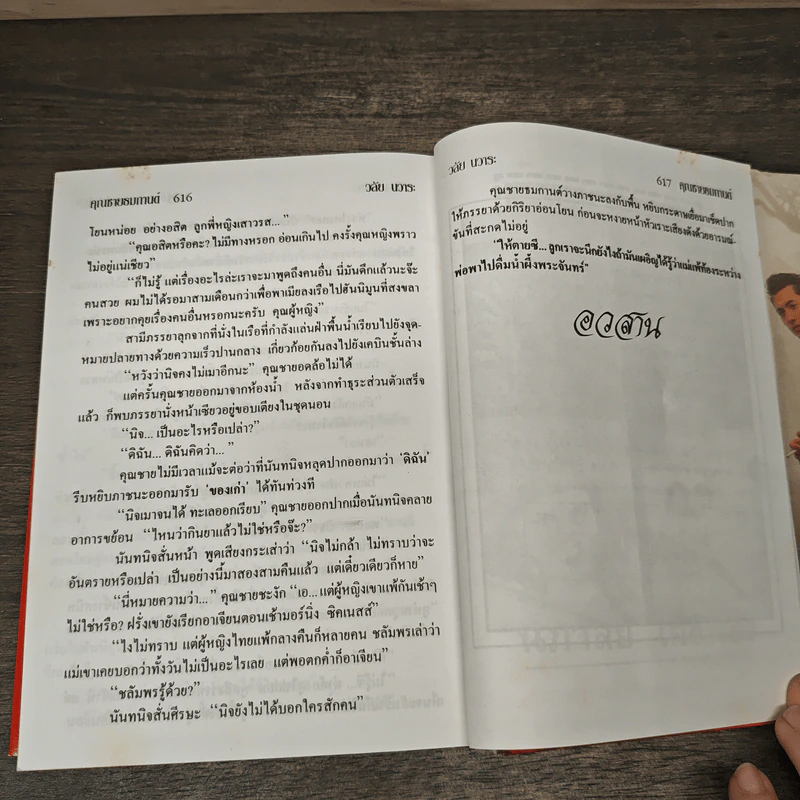 คุณชายธมกานต์ 616
วลัย นวาระ
โยนหน่อย อย่างอสิต ลูกพี่หญิงเสาวรส..."
"คุณอสิตหรือคะ? ไม่มีทางหรอก อ่อนเกินไป คงรั้งคุณหญิงพราว
ไม่อยู่แน่เชียว"
"ก็ไม่รู้ แต่เรื่องอะไรล่ะเราจะมาพูดถึงคนอื่น นี่มันดึกแล้วนะจ๊ะ
คนสวย ผมไม่ได้รอมาสามเดือนกว่าเพื่อพาเมียลงเรือไปฮันนิมูนที่สงขลา
เพราะอยากคุยเรื่องคนอื่นหรอกนะครับ คุณผู้หญิง"
สามีภรรยาลุกจากที่นั่งในเรือที่กำลังแล่นฝ่าพื้นน้ำเรียบไปยังจุด-
หมายปลายทางด้วยความเร็วปานกลาง เกี่ยวก้อยกันลงไปยังเคบินชั้นล่าง
"หวังว่านิจคงไม่เมาอีกนะ" คุณชายอดล้อไม่ได้
แต่ครั้นคุณชายออกมาจากห้องน้ำ หลังจากทำธุระส่วนตัวเสร็จ
แล้ว ก็พบภรรยานั่งหน้าเซียวอยู่ขอบเตียงในชุดนอน
"นิจ... เป็นอะไรหรือเปล่า?"
"ดิฉัน... ดิฉันคิดว่า..."
คุณชายไม่มีเวลาแม้จะต่อว่าที่นันทนิจหลุดปากออกมาว่า 'ดิฉัน'
รีบหยิบภาชนะออกมารับ 'ของเก่า' ได้ทันท่วงที
"นิจเมาจนได้ ทะเลออกเรียบ" คุณชายออกปากเมื่อนันทนิจคลาย
อาการขย้อน "ไหนว่ากินยาแล้วไม่ใช่หรือจ๊ะ?"
นันทนิจสั่นหน้า พูดเสียงกระเส่าว่า "นิจไม่กล้า ไม่ทราบว่าจะ
อันตรายหรือเปล่า เป็นอย่างนี้มาสองสามคืนแล้ว แต่เดี๋ยวเดียวก็หาย"
"นี่หมายความว่า..." คุณชายชะงัก "เอ... แต่ผู้หญิงเขาแพ้กันเช้าๆ
ไม่ใช่หรือ? ฝรั่งเขายังเรียกอาเจียนตอนเช้ามอร์นิ่ง ซิคเนสส์"
"ไงไม่ทราบ แต่ผู้หญิงไทยแพ้กลางคืนก็หลายคน ชลัมพรเล่าว่า
แม่เขาเคยบอกว่าทั้งวันไม่เป็นอะไรเลย แต่พอตกค่ำก็อาเจียน"
"ชลัมพรรู้ด้วย?"
นันทนิจสั่นศีรษะ "นิจยังไม่ได้บอกใครสักคน"
วลัย นวาระ
617 คุณชายธมกานต์
คุณชายธมกานต์วางภาชนะลงกับพื้น หยิบกระดาษเยื่อมาเช็ดปาก
ให้ภรรยาด้วยกิริยาอ่อนโยน ก่อนจะหงายหน้าหัวเราะเสียงดังด้วยอารมณ์-
ขันที่สะกดไม่อยู่
"ให้ตายซี... ลูกเราจะนึกยังไงถ้ามันเผอิญได้รู้ว่าแม่แพ้ท้องระหว่าง
พ่อพาไปดื่มน้ำผึ้งพระจันทร์"
อวสาน